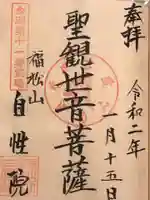 奉拝
令和二年
一月十五日
聖観世音菩薩
福松山
自性院